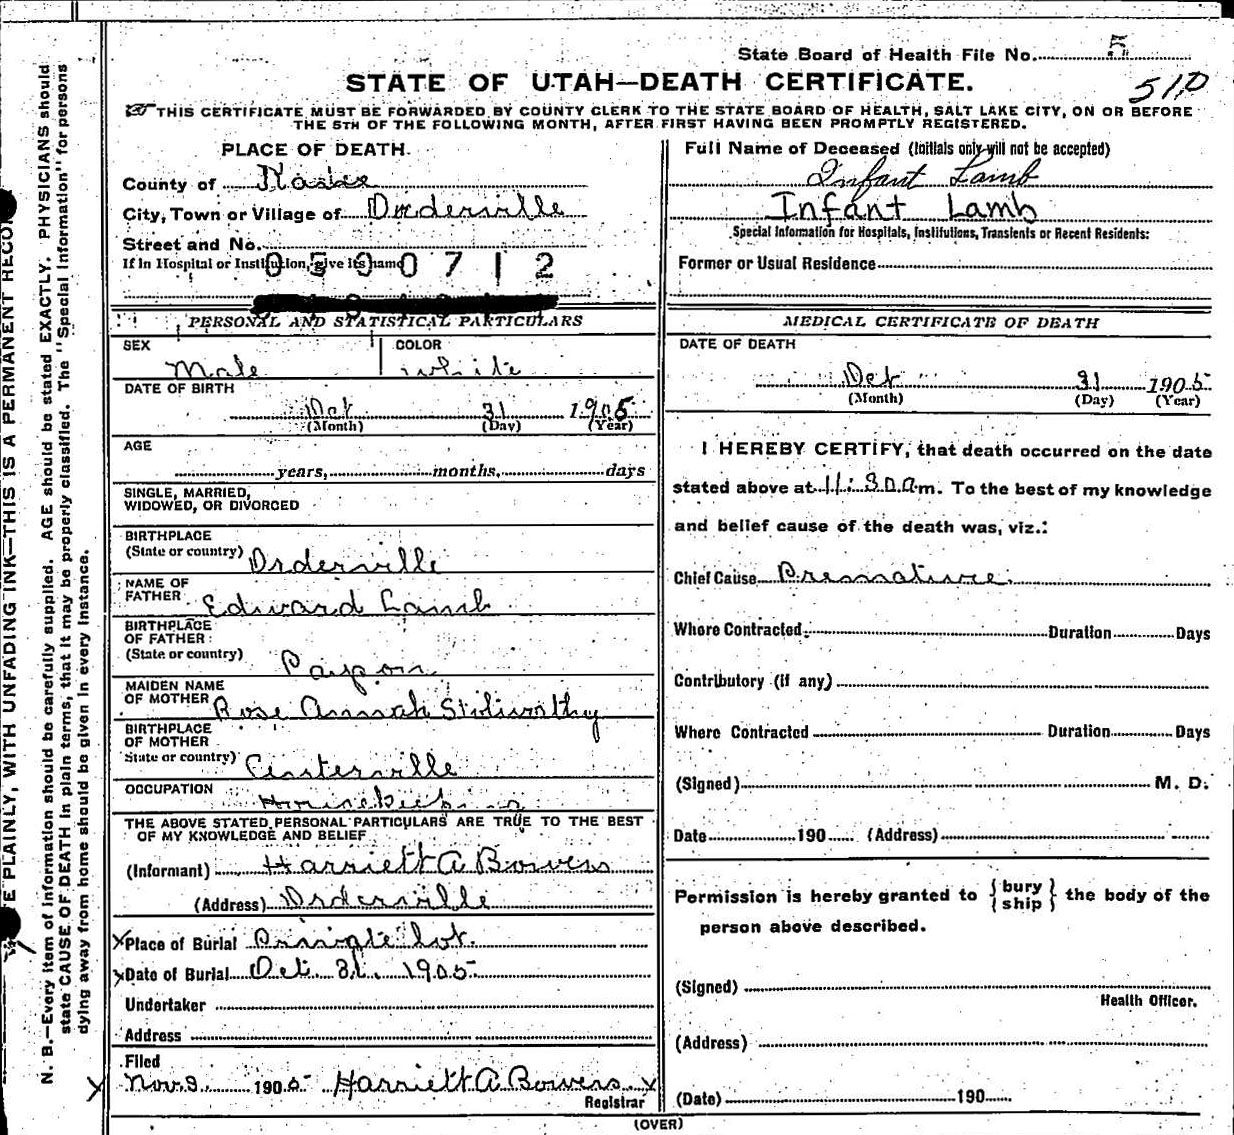 State Board of Health File No. 5
STATE OF UTAH—DEATH CERTIFICATE.
511D
THIS CERTIFICATE MUST BE FORWARDED BY COUNTY CLERK TO THE STATE BOARD OF HEALTH, SALT LAKE CITY, ON OR BEFORE
THE 5TH OF THE FOLLOWING MONTH, AFTER FIRST HAVING BEEN PROMPTLY REGISTERED.
PLACE OF DEATH.
County of Kane
City, Town or Village of Orderville
Street and No.
If in Hospital or Institution, give its name
0500712
PERSONAL AND STATISTICAL PARTICULARS
SEX Male COLOR White
DATE OF BIRTH
Oct 31 1905
(Month) (Day) (Year)
AGE
years, months, days
SINGLE, MARRIED,
WIDOWED, OR DIVORCED
BIRTHPLACE
(State or country) Orderville
NAME OF
FATHER Edward Lamb
BIRTHPLACE
OF FATHER
(State or country) Payson
MAIDEN NAME
OF MOTHER Rose Annah Stolworthy
BIRTHPLACE
OF MOTHER
State or country) Centerville
OCCUPATION Housekeeping
THE ABOVE STATED PERSONAL PARTICULARS ARE TRUE TO THE BEST
OF MY KNOWLEDGE AND BELIEF
(Informant) Harriett A Bowers
(Address) Orderville
x Place of Burial Private lot.
x Date of Burial Oct. 31. 1905
Undertaker
Address
Filed
Nov 3 1905 Harriett A Bowers x
Registrar
Full Name of Deceased (Initials only will not be accepted)
Infant Lamb
Infant Lamb
Special Information for Hospitals, Institutions, Transients or Recent Residents:
Former or Usual Residence
MEDICAL CERTIFICATE OF DEATH
DATE OF DEATH
Oct 31 1905
(Month) (Day) (Year)
I HEREBY CERTIFY, that death occurred on the date
stated above at 11:30 a m. To the best of my knowledge
and belief cause of the death was, viz.:
Chief Cause Premature.
Where Contracted Duration Days
Contributory (if any)
Where Contracted Duration Days
(Signed) M. D.
Date 190 (Address)
Permission is hereby granted to {bury
ship} the body of the
person above described.
(Signed)
Health Officer.
(Address)
(Date) 190
(OVER)
E PLAINLY, WITH UNFADING INK—THIS IS A PERMANENT RECO
N. B.—Every item of information should be carefully supplied. AGE should be stated EXACTLY. PHYSICIANS should
state CAUSE OF DEATH in plain terms, that it may be properly classified. The "Special Information" for persons
dying away from home should be given in every instance.